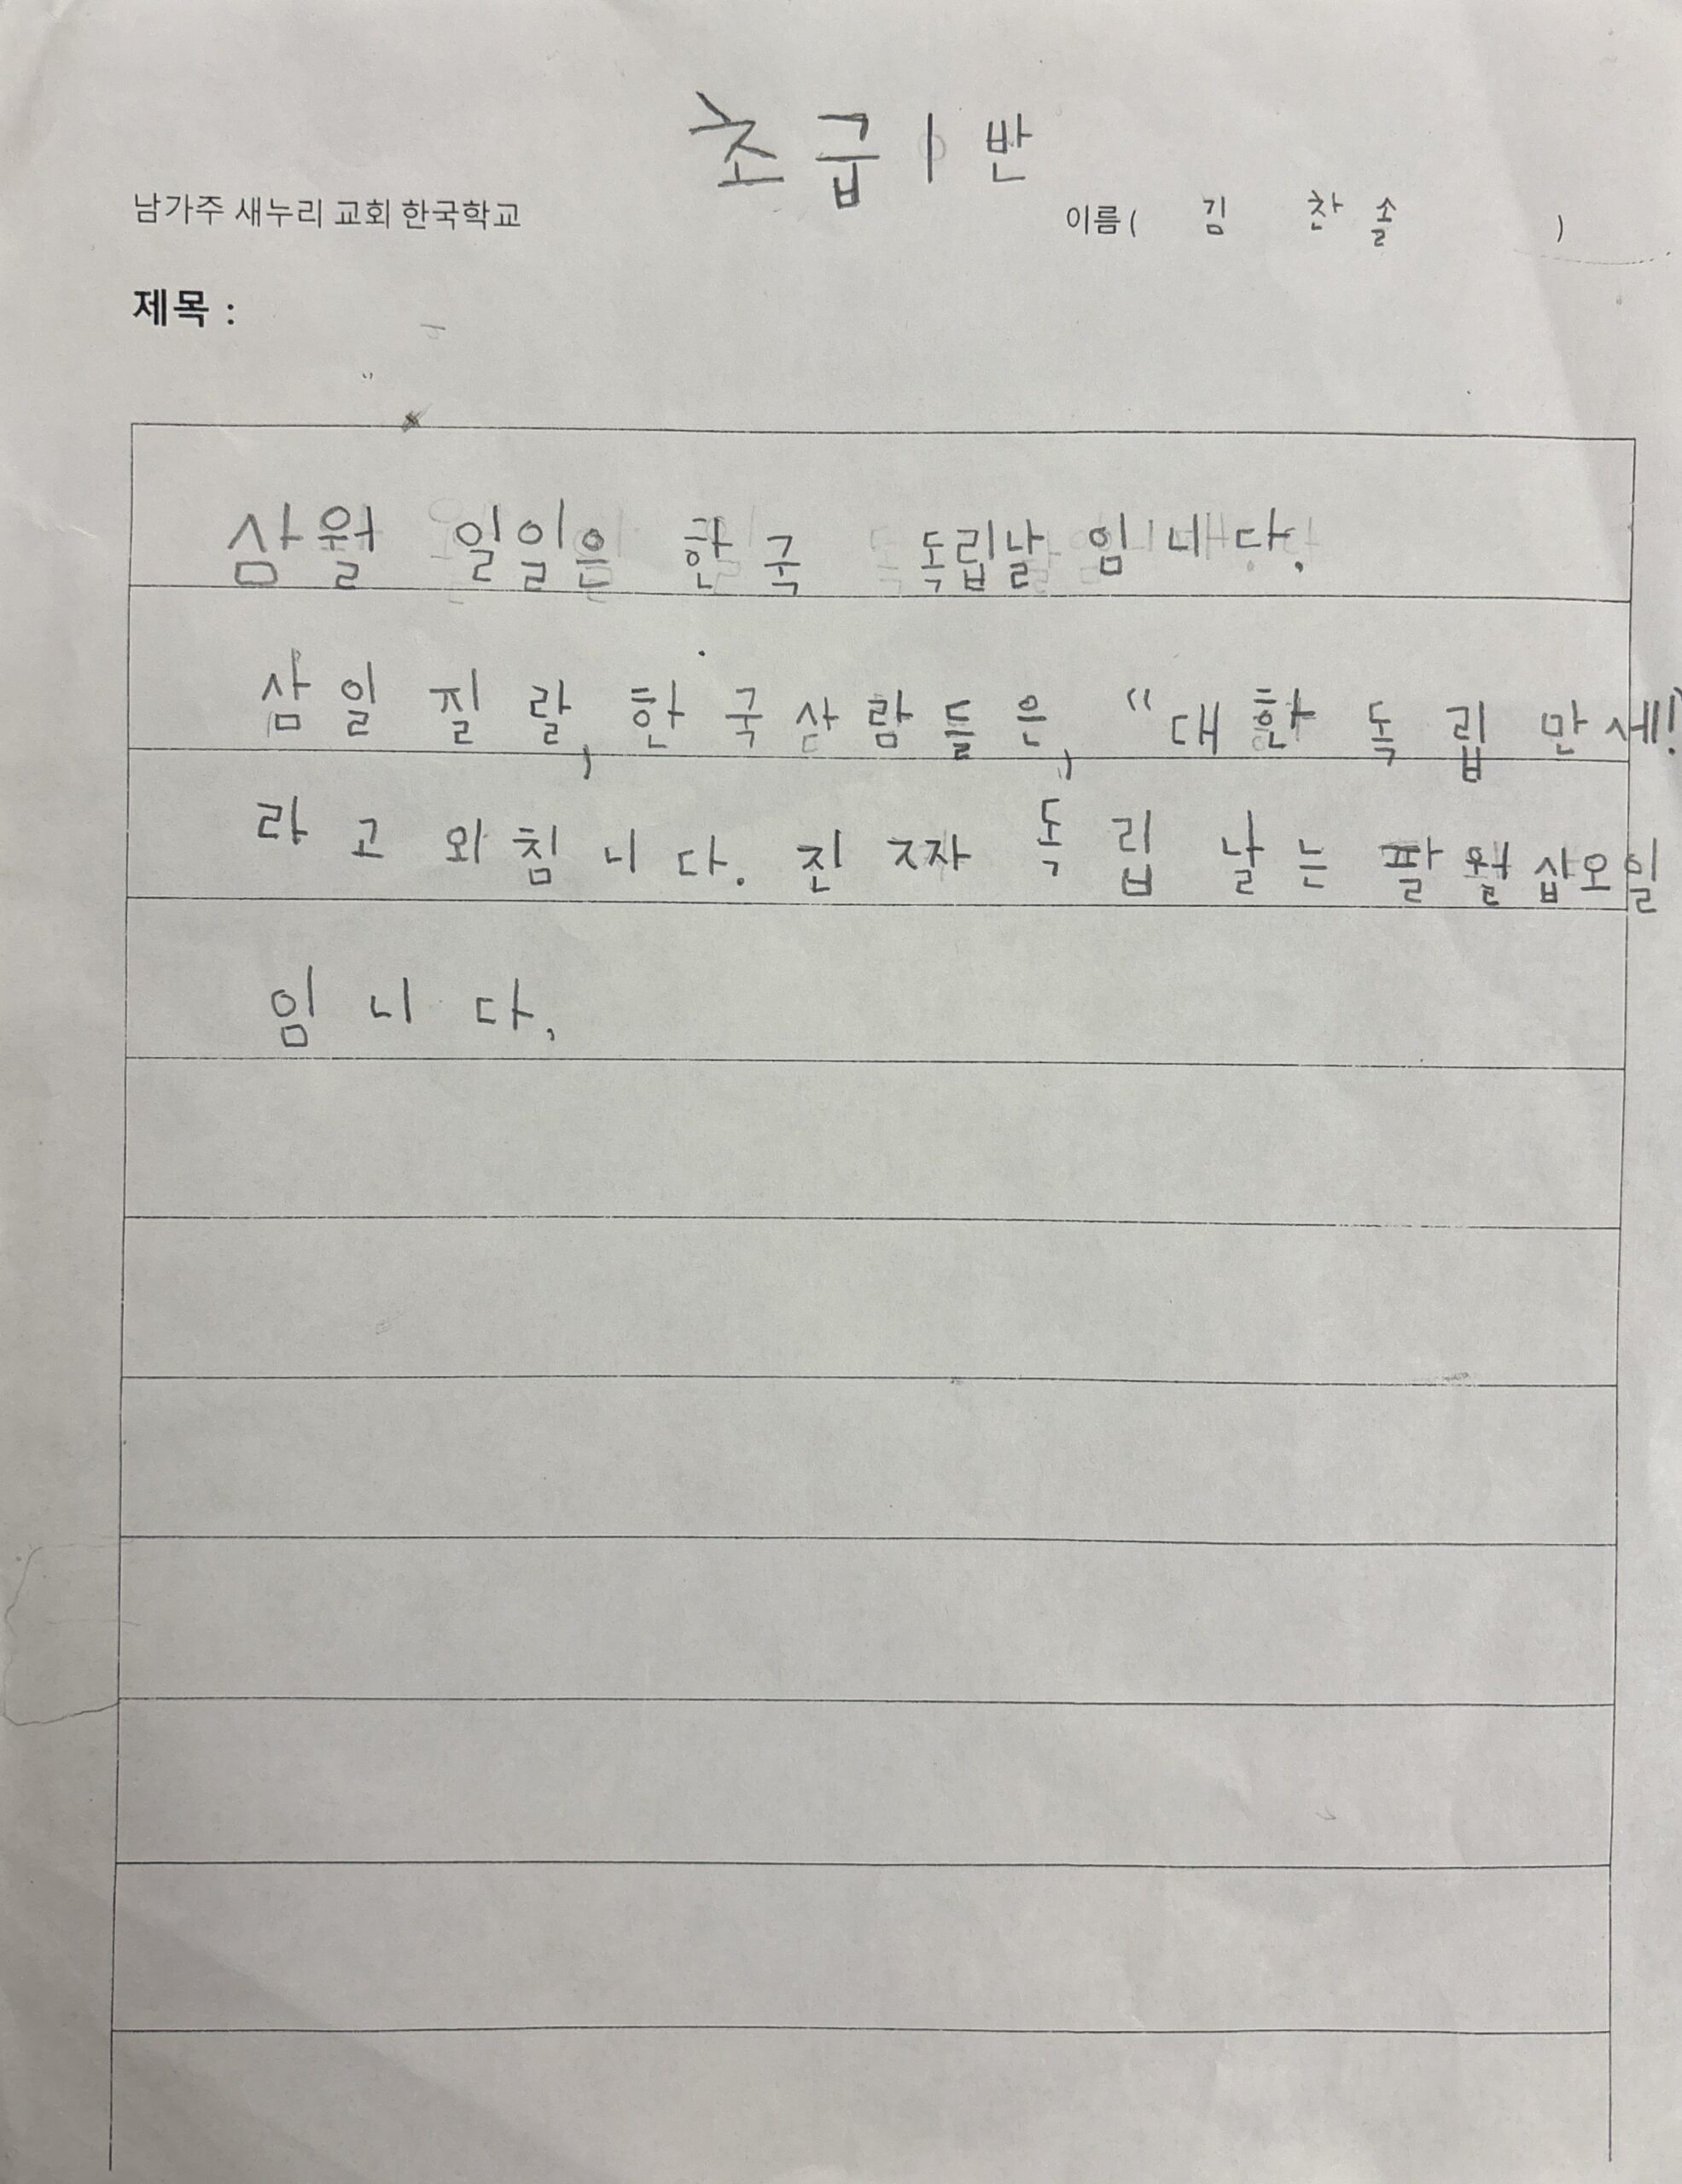 초급1반
남가주 새누리 교회 한국학교 이름( 김 찬솔 )
제목 :
삼월 일일은 한국 독립날 입니다.
삼일 질랄, 한국삼람들은, "대한 독립 만세!"
라고 와침니다. 진짜 독립 날는 팔월삽오일
임니다.